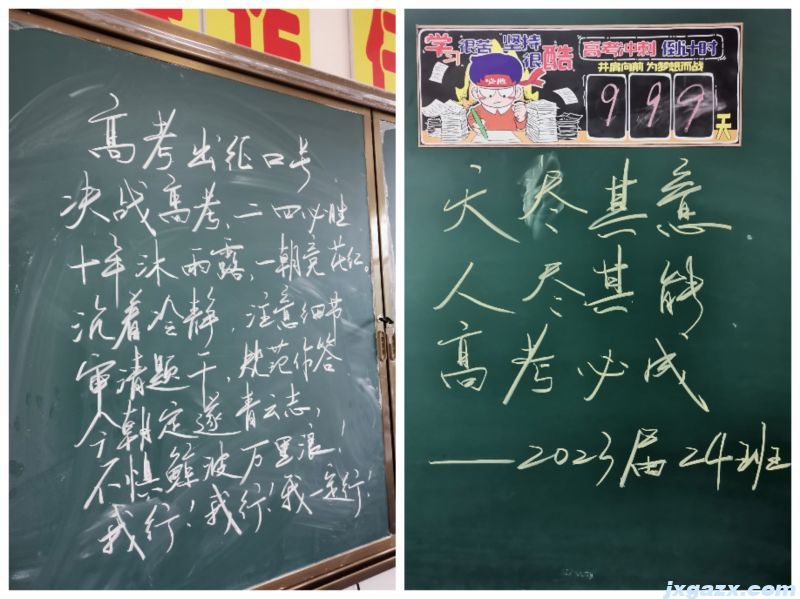 高考出征口号
决战高考,二四必胜
十年沐雨露,一朝竞花红。
沉着冷静,注意细节
审清题干,规范作答
今朝定遂青云志,
不惧鲸波万里浪!
我行!我行!我一定行!
学习很苦 坚持很酷
高考冲刺 倒计时
并肩向前 为梦想而战
必胜
999天
天尽其意
人尽其能
高考必成
——2023届24班
jxgazx.com